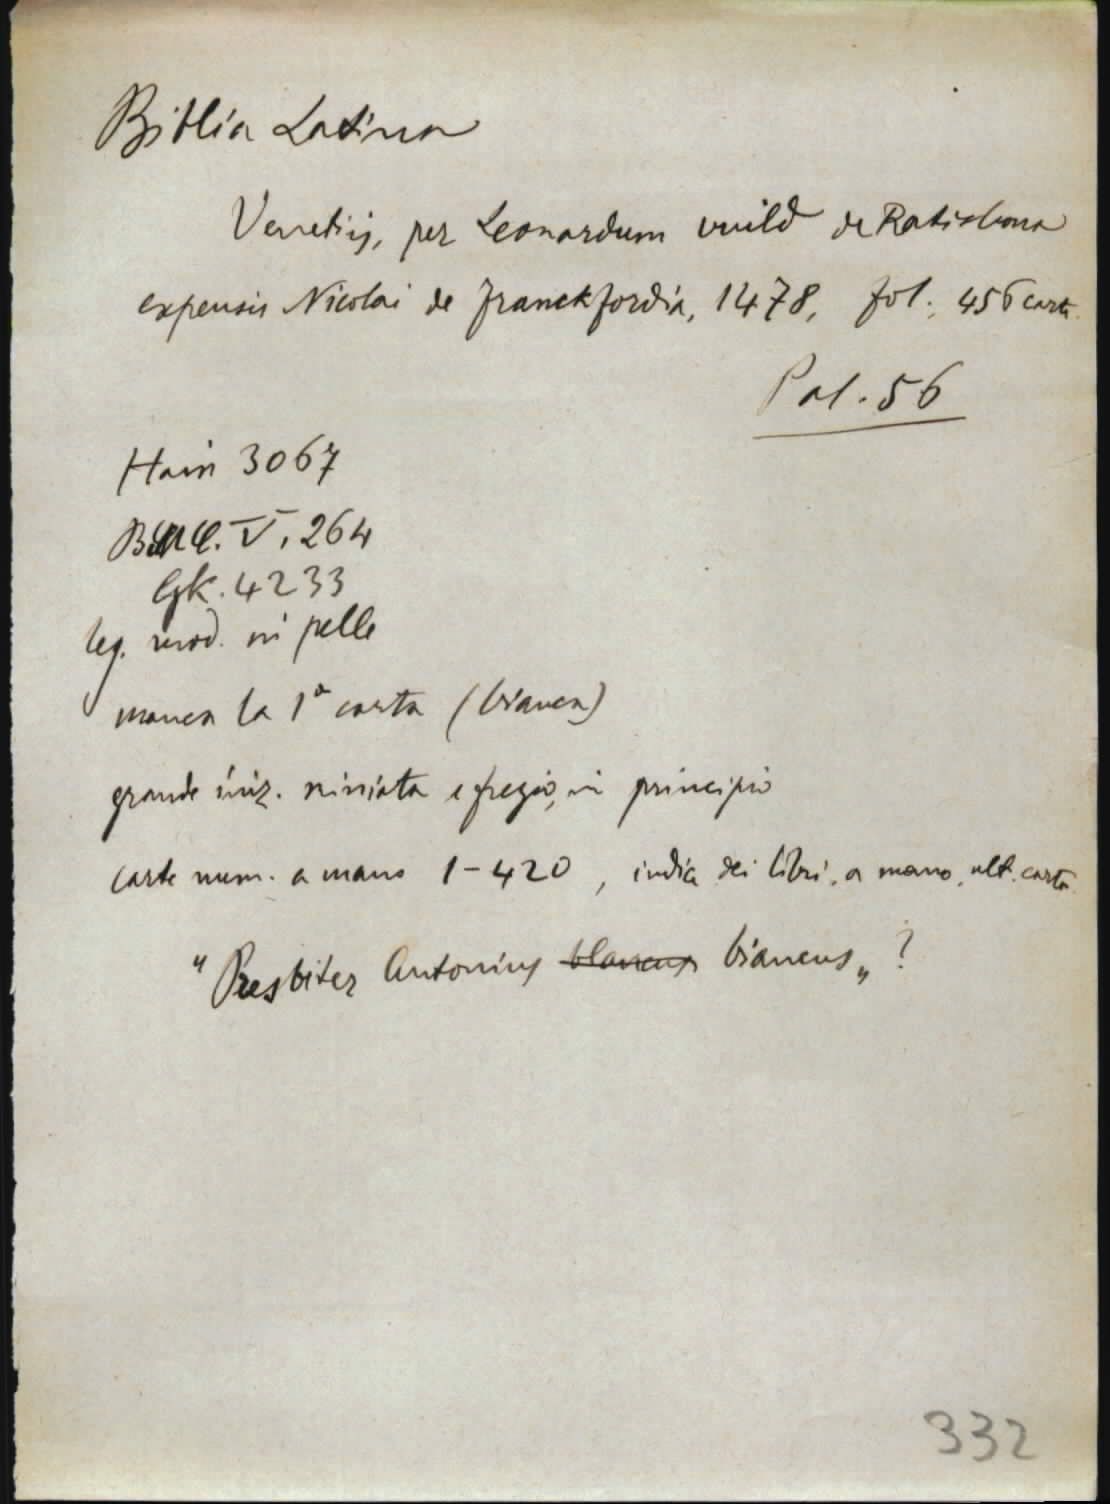 Biblia Latina
Venetiis, per Leonardum vuild de Ratisbona
expensis Nicolai de franckfordia, 1478, fol., 456 carte
Pal. 56
Hain 3067
BMC. V, 264
GK. 4233
leg. mod. in pelle
manca la 1ª carta (bianca)
grande iniz. miniata e fregio, in principio
carte num. a mano 1-420, indice dei libri, a mano, ult. carta
"Presbiter Antonius blancus biancus„ ?
332